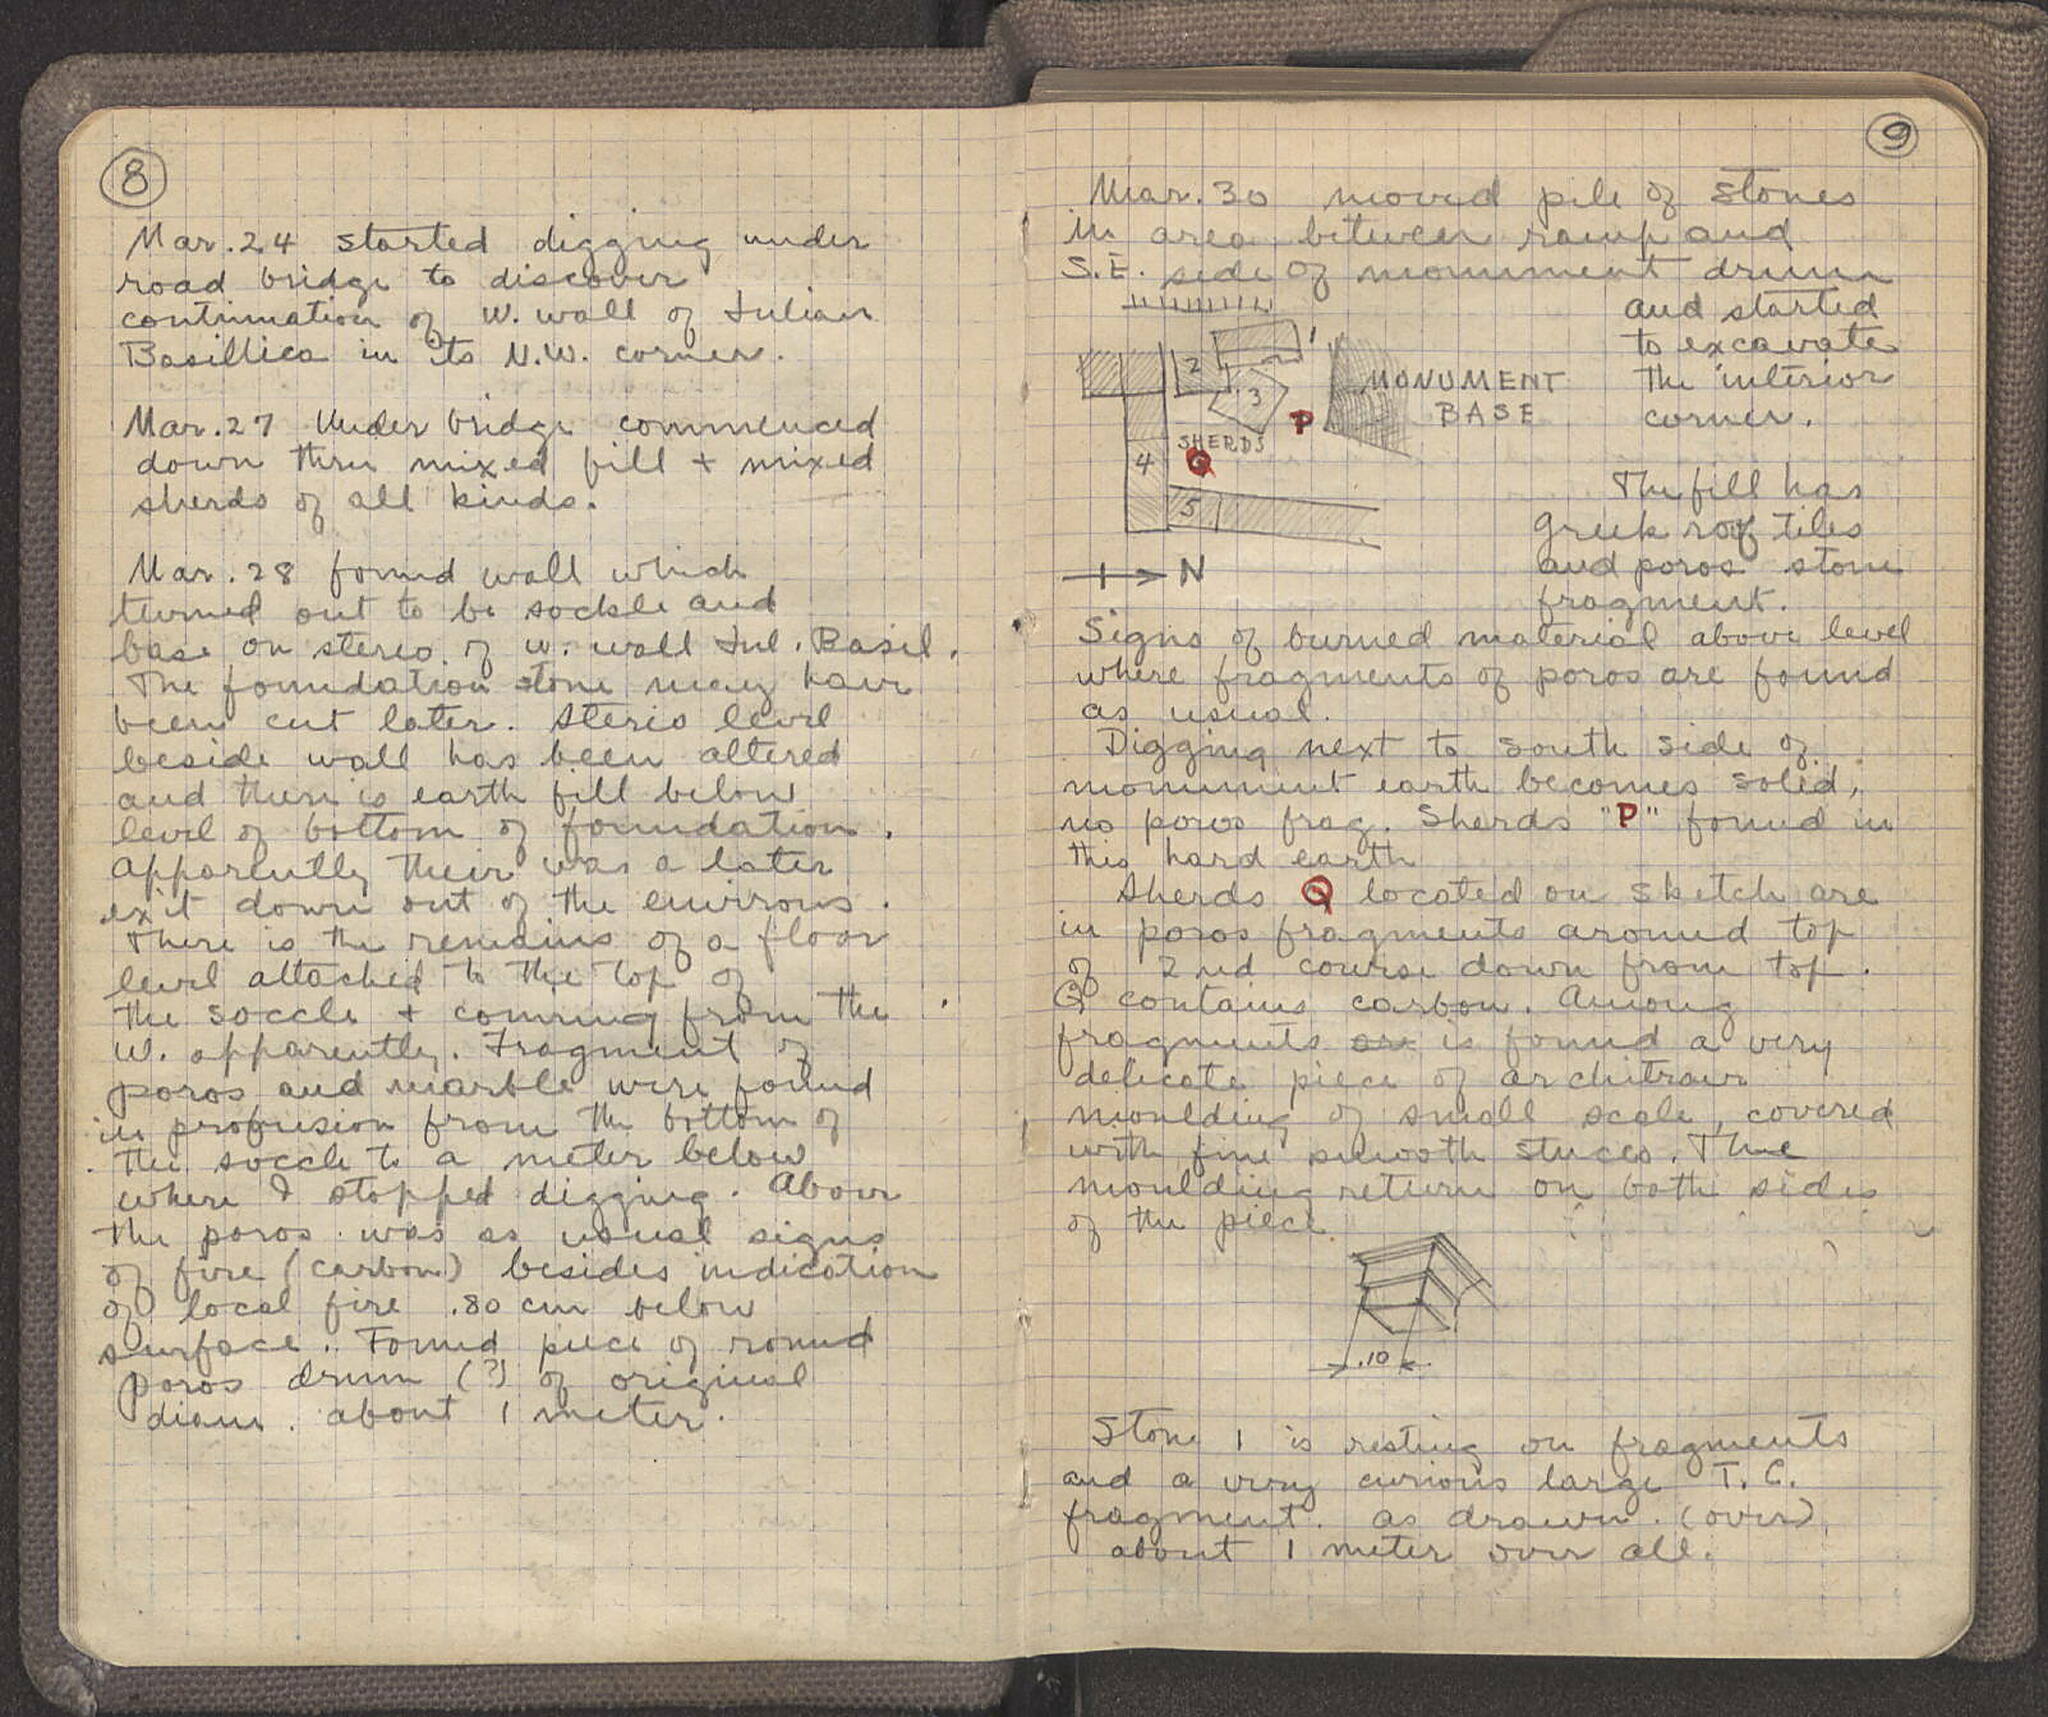 8
Mar. 24 started digging under
road bridge to discover
continuation of W. wall of Julian
Basillica in its N.W. corner.
Mar. 27 Under bridge commenced
down thru mixed fill + mixed
sherds of all kinds.
Mar. 28 found wall which
turned out to be sockle and
base on stereo of W. wall Jul. Basil.
The foundation stone may have
been cut later. Stereo level
beside wall has been altered
and there is earth fill below
level of bottom of foundation.
Apparently their was a later
exit down out of the environs.
There is the remains of a floor
level attached to the top of
the soccle + coming from the
W. apparently. Fragment of
poros and marble were found
in profusion from the bottom of
the soccle to a meter below
where I stopped digging. Above
the poros was as usual signs
of fire (carbon) besides indication
of local fire .80 cm below
surface. Found piece of round
poros drum (?) of original
diam. about 1 meter.
9
Mar. 30 moved pile of stones
in area between ramp and
S.E. side of monument drum
and started
to excavate
the interior
corner.
1
2
3
MONUMENT
BASE
P
SHERDS
4
Q
5
N
The fill has
Greek roof tiles
and poros stone
fragment.
Signs of burned material above level
where fragments of poros are found
as usual.
Digging next to south side of
monument earth becomes solid,
no poros frag. Sherds "P" found in
this hard earth
Sherds Q located on sketch are
in poros fragments around top
of 2nd course down from top.
Q contains carbon. Among
fragments are is found a very
delicate piece of architrave
moulding of small scale, covered
with fine smooth stucco. The
moulding return on both sides
of the piece.
.10
Stone 1 is resting on fragments
and a very curious large T.C.
fragment. as drawn. (over)
about 1 meter over all.